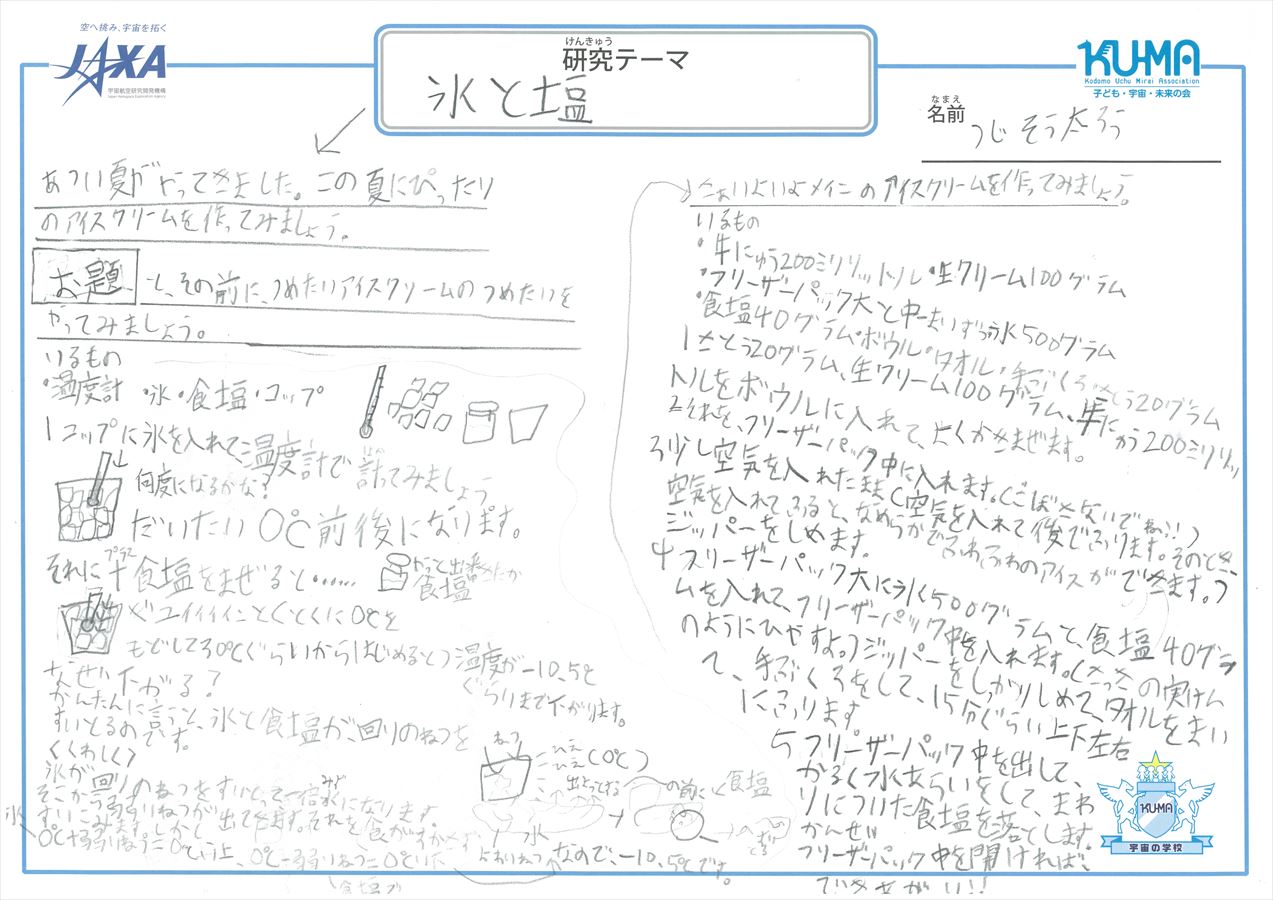 空へ挑み、宇宙を拓く
JAXA
宇宙航空研究開発機構
Japan Aerospace Exploration Agency
けんきゅう
研究テーマ
氷と塩
KU-MA
Kodomo Uchu Mirai Association
子ども・宇宙・未来の会
なまえ
名前
つじ そう太ろう
あつい夏がやってきました。この夏にぴったり
のアイスクリームを作ってみましょう。
お題
と、その前に、つめたいアイスクリームのつめたいを
やってみましょう。
いるもの
・温度計 ・氷・食塩・コップ
1コップに氷を入れて、温度計で計ってみましょう
何度になるかな?
だいたい0℃前後になります。
それに+食塩をまぜると……
プラス
やっと出番きたか
食塩
ぐユイイイインとくとくに0℃を
もどして30℃ぐらいからはじめると)温度が-10,5℃
ぐらいまで下がります。
なぜ下がる?
かんたんに言うと、氷と食塩が、回りのねつを
すいとるのです。
くくわしく>
氷が回りのねつをすいとって一倍水になります。
みず
そこから弱弱いねつが出てきます。それを食がすかさず
すいこみます。しかし
氷
0℃+弱弱いねつ=0℃い上、0℃-弱弱いねつ=0℃い下
よわいねつ なので、-10,5℃です。
ねつ
ひえ
ひえ(0℃)
出とってる
の前に
食塩
水
さぁいよいよメインのアイスクリームを作ってみましょう。
いるもの
・牛にゅう200ミリリットル・生クリーム100グラム
・フリーザーパック大と中一まいずつ・氷500グラム
・食塩40グラム・ボウル・タオル・手ぶくろ・さとう20グラム
1さとう20グラム、生クリーム100グラム、牛にゅう200ミリリッ
トルをボウルに入れて、よくかきまぜます。
2それを、フリーザーパック中に入れます。(こぼさないでね!!)
3少し空気を入れたまま(空気を入れて後でふります。そのとき、
空気を入れてふると、なめらかでふわふわのアイスができます。)
ジッパーをしめます。
4フリーザーパック大に氷500グラムと、食塩40グラ
ムを入れて、フリーザーパック中を入れます。(さっきの実けん
のようにひやすよ。)ジッパーをしっかりしめて、タオルをまい
て、手ぶくろをして、15分ぐらい上下左右
にふります
5フリーザーパック中を出して、
かるく水あらいをして、まわ
りについた食塩を落とします。
かんせい
フリーザーパック中を開ければ、
できあがり!!
KU-MA
宇宙の学校